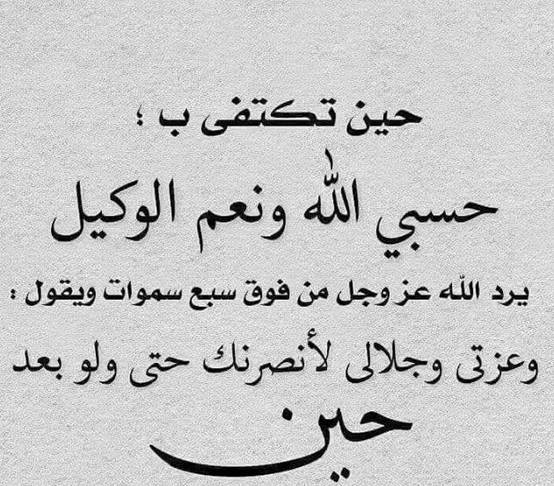 حين تكتفى ب ؛
حسبي الله ونعم الوكيل
يرد الله عز وجل من فوق سبع سموات ويقول :
وعزتى وجلالى لأنصرنك حتى ولو بعد
حين